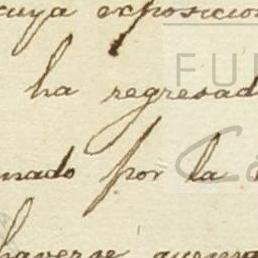 cuya exposicion
ha regresad
mado por la
haverse